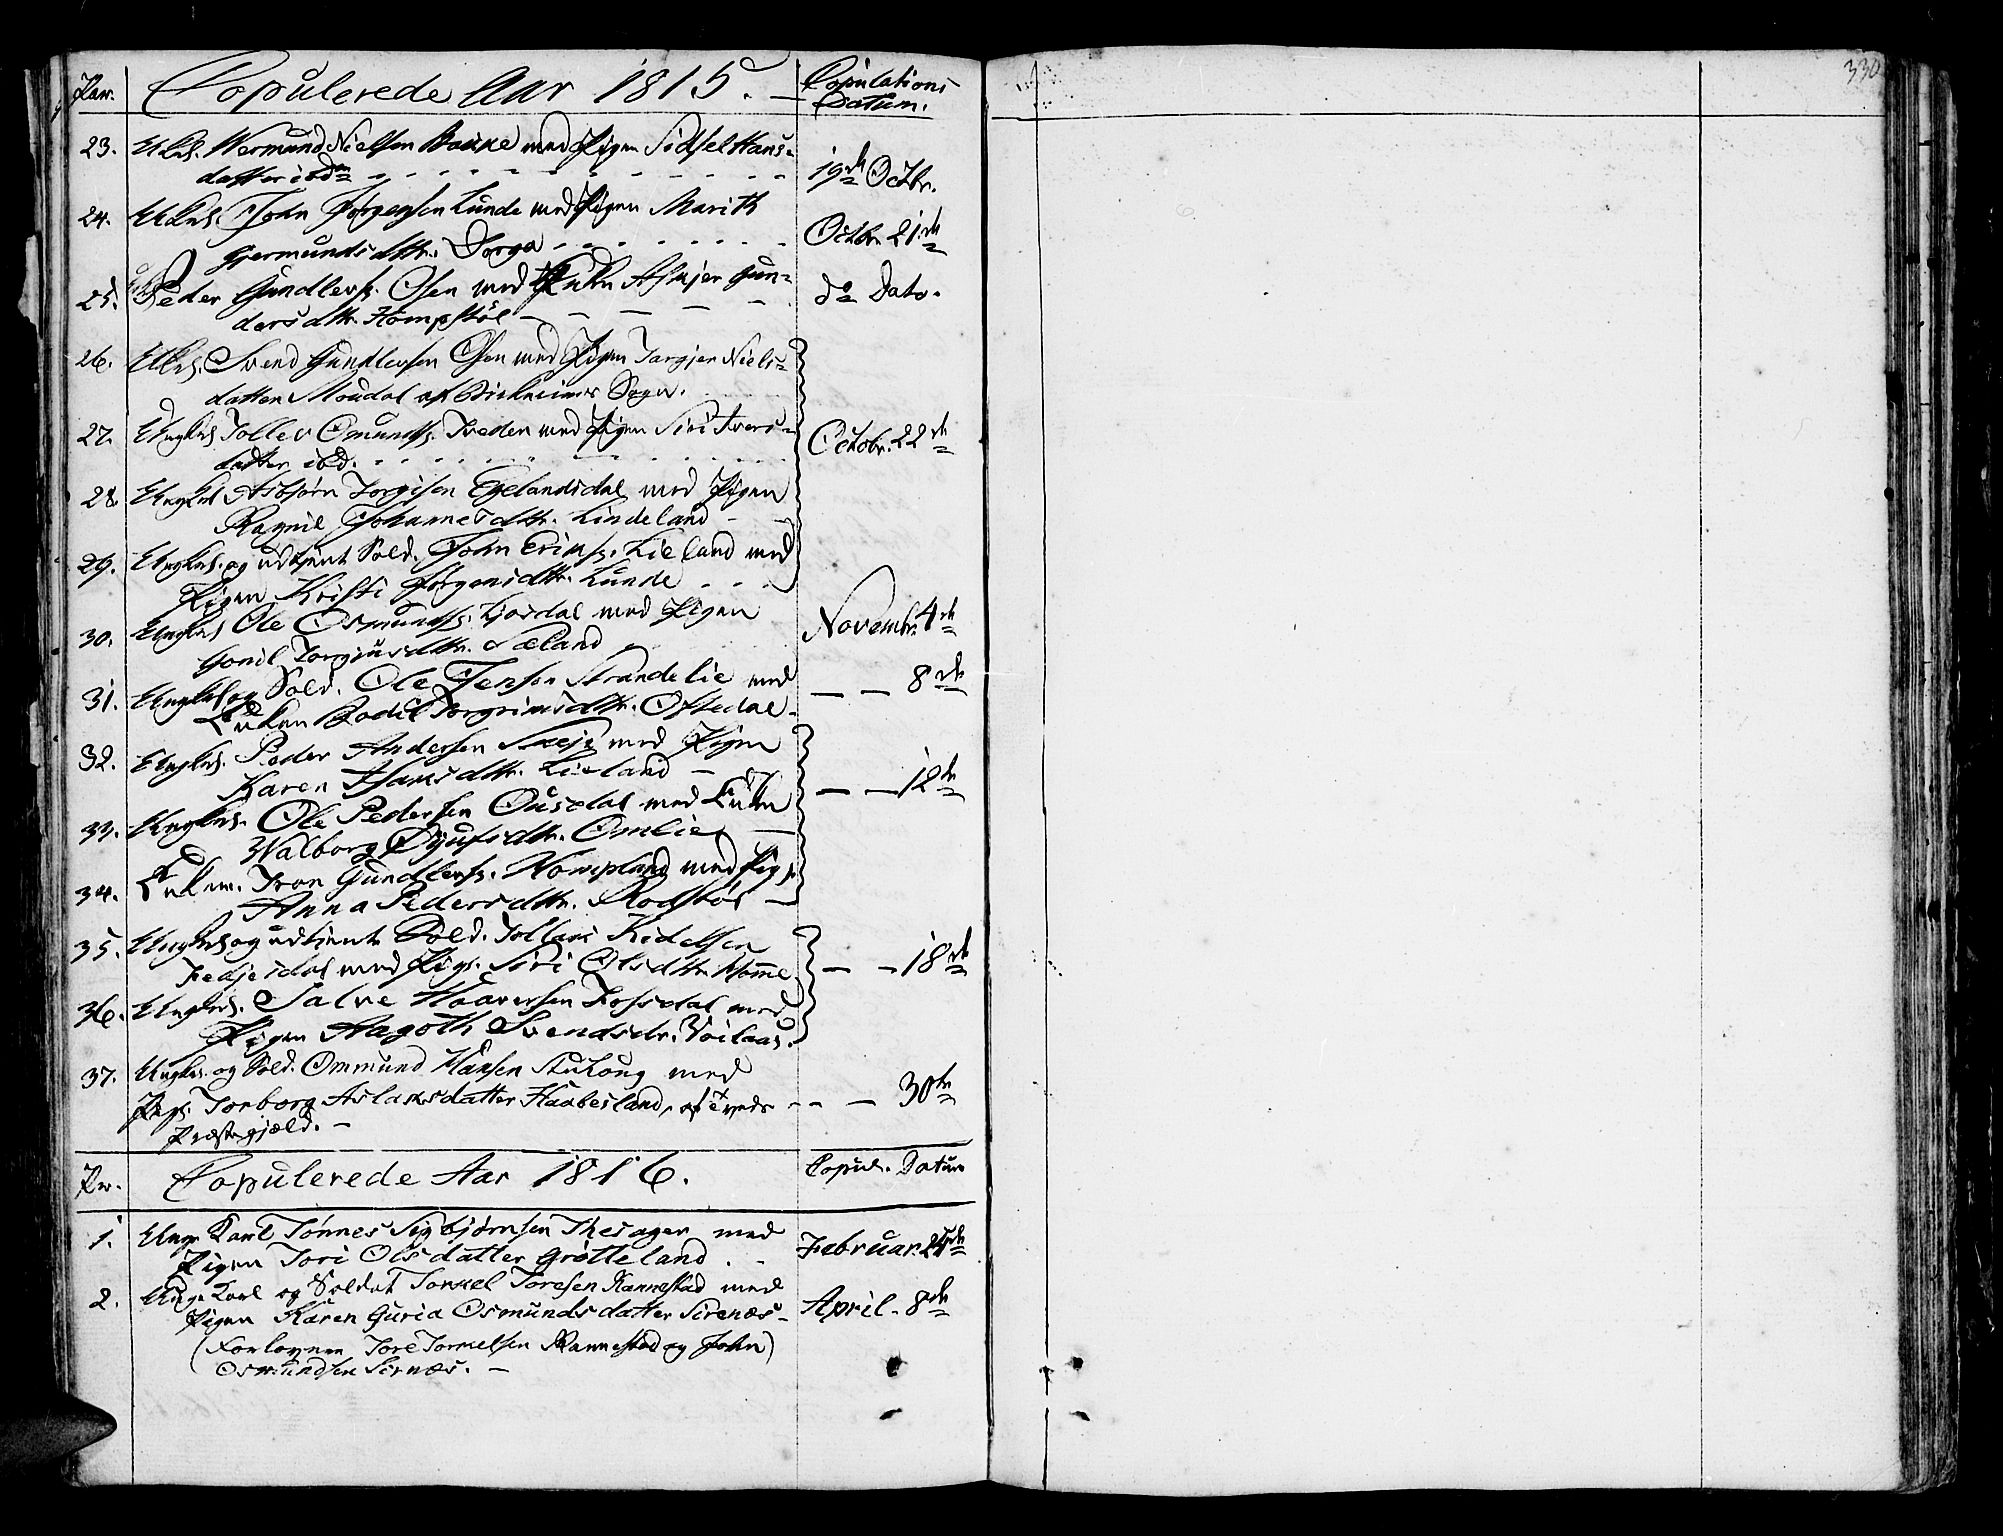 Par. Copulerede Aar 1815. — Copulations Datum.
23. Ukrl. Wermund Nielsen Bakke med Pigen Sidsel Hans-
datter ibdm 19de Octbr.
24. Ukrl. John Jørgensen Lunde med Pigen Marith
Gjermundsdttr. Dorga Octbr. 21de
25. Peder Gundlerss. Osen med Enken Asgjer Gun-
dersdttr. Hompstøl do Dato.
26. Ukrl. Svend Gundlersen Osen med Pigen Targjer Niels-
datter Moudal af Birkrems Sogn.
27. Ungkrl Tollev Omunds. Tveden med Pigen Siri Ivers-
datter ibd. Octobr. 22de
28. Ungkrl Asbjørn Torgisen Egelandsdal med Pigen
Ragnil Johannesdttr. Lindeland
29. Ungkrl. og udtjent Sold. John Erikss. Lieland med
Pigen Kristi Jørgensdttr. Lunde
30. Ungkrl Ole Osmundss. Liosdal med Pigen
Gonil Torgiusdttr. Sæland Novembr. 4de
31. Ungkrl og Sold. Ole Jensen Strandelie med
Enken Bodil Torgrimsdttr. Oftedal — — 8de
32. Ungkrl. Peder Andersen med Pigen
Karen Hansdttr. Lieland —
33. Ungkrl. Ole Pedersen Ousdal med Enken
Walborg Omlie — — 12te
34. Enkem. Iver Gundlerss. Hompland med Pig.
Anna Pedersdttr. Rodstøl —
35. Ungkrl og udtjent Sold. Tollak Kidelsen
Fedjedal med Pig. Siri Olsdttr. Homme — — 18de
36. Ungkrl. Salve Haaversen Fossdal med
Pigen Aagoth Svendsdr. Woilaas.
37. Ungkrl. og Sold. Ommund Hansen Stukong med
Pig. Torborg Aslaksdatter Haabesland, af
Præstegjæld. — — — 30te
Par. Copulerede Aar 1816. Copul. Datum
1. Ungr Karl Tønnes Sigbjørnsen Thesager med
Pigen Tori Olsdatter Grøtteland. Februar.
2. Unge Karl og Soldat Tonnel Toresen Rannestad med
Pigen Karen Guria Osmundsdatter Sirnæs- April. 8de
(Forlovere Tore Tonnelsen Rannestad og John)
Osmundsen Sirnæs. —
330